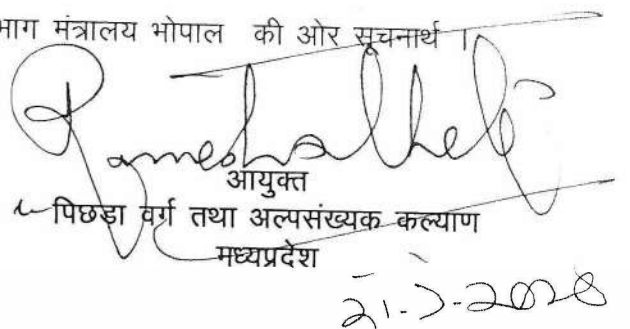 भाग मंत्रालय भोपाल की ओर सूचनार्थ ।
आयुक्त
पिछडा वर्ग तथा अल्पसंख्यक कल्याण
मध्यप्रदेश